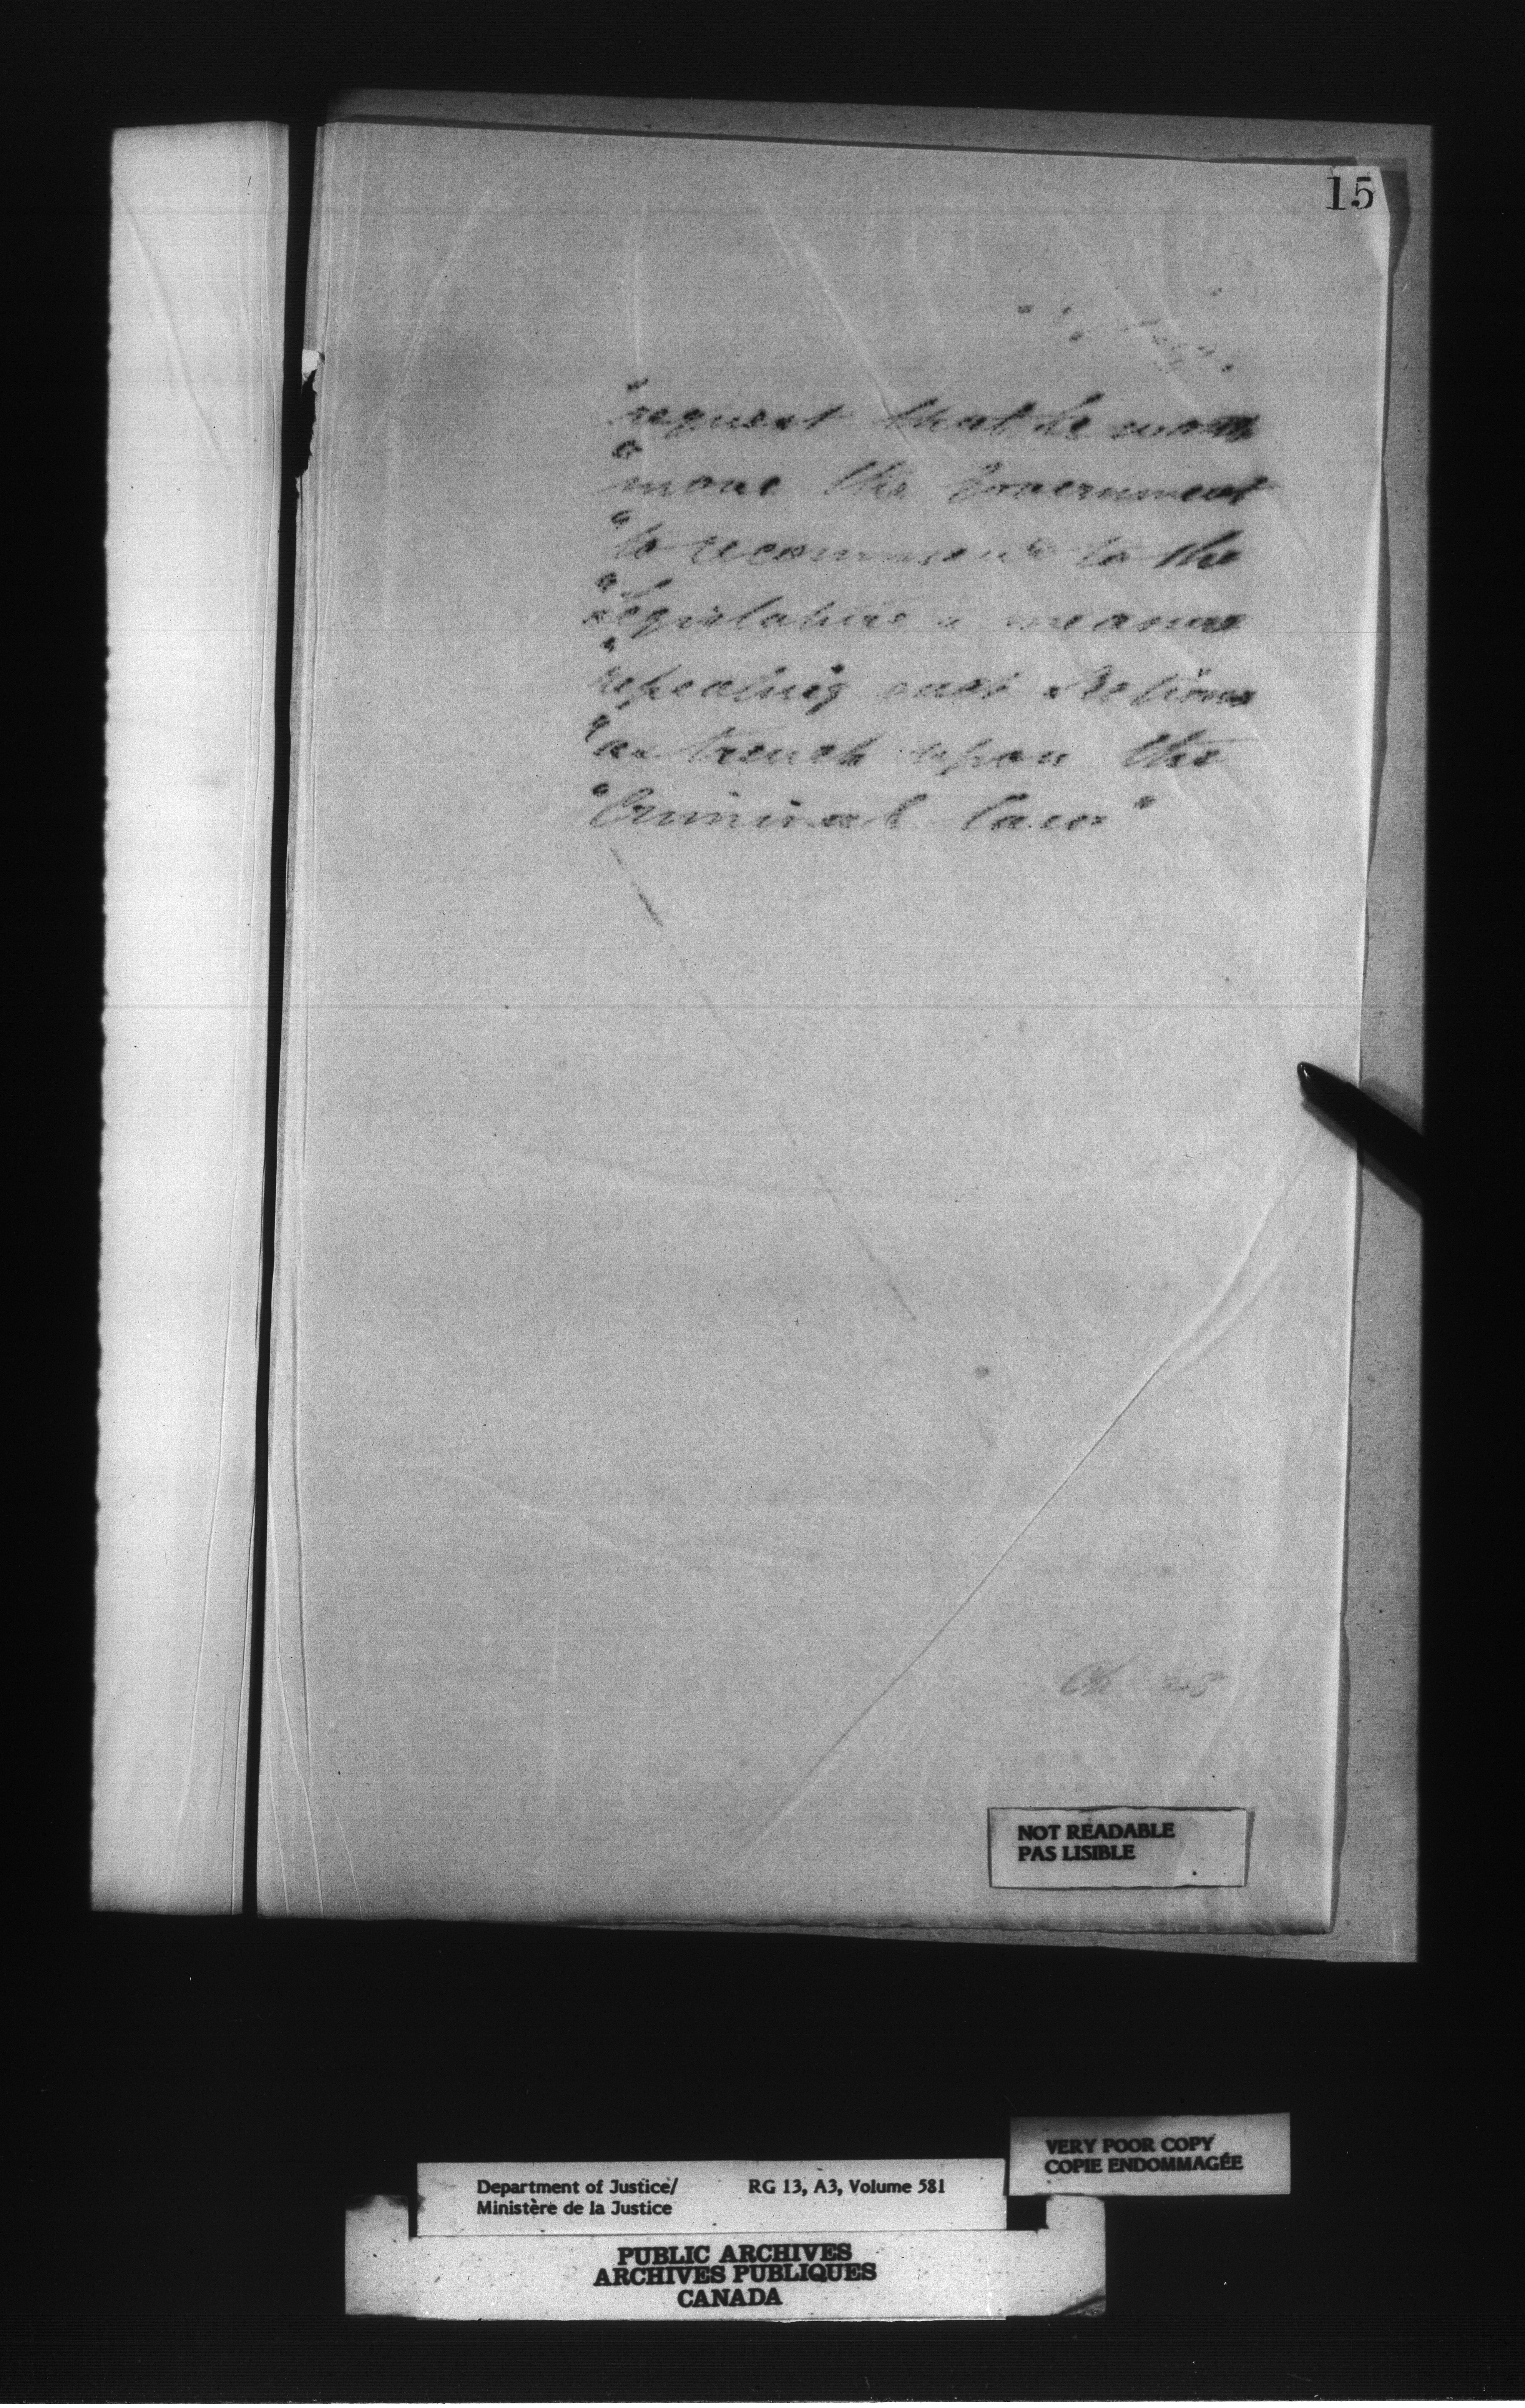 15
"request that he would
"move the Government
"to recommend to the
"Legislature a measure
"repealing such Sections
"as trench upon the
"Criminal law"
NOT READABLE
PAS LISIBLE
VERY POOR COPY
COPIE ENDOMMAGÉE
Department of Justice/ RG 13, A3, Volume 581
Ministère de la Justice
PUBLIC ARCHIVES
ARCHIVES PUBLIQUES
CANADA